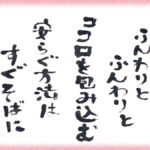 ふんわりと
ふんわりと
ココロを包み込む
安らぐ方法は
すぐそばに